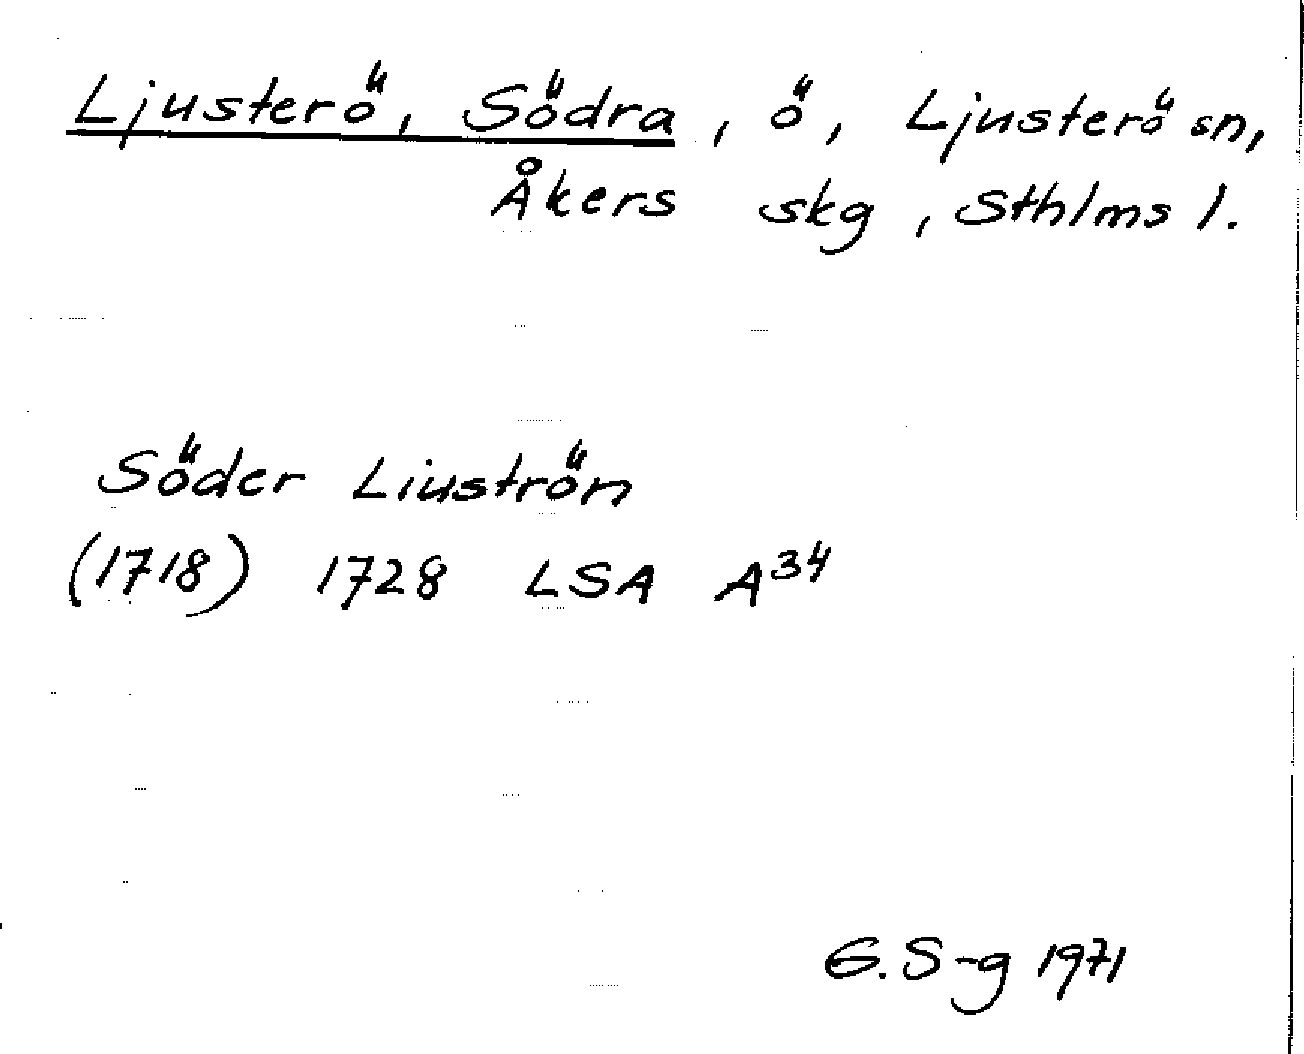 Ljusterö, Södra, ö, Ljusterö sn,
Åkers skg, Sthlms l.
Söder Liuströn
(1718) 1728 LSA A34
G. S-g 1971